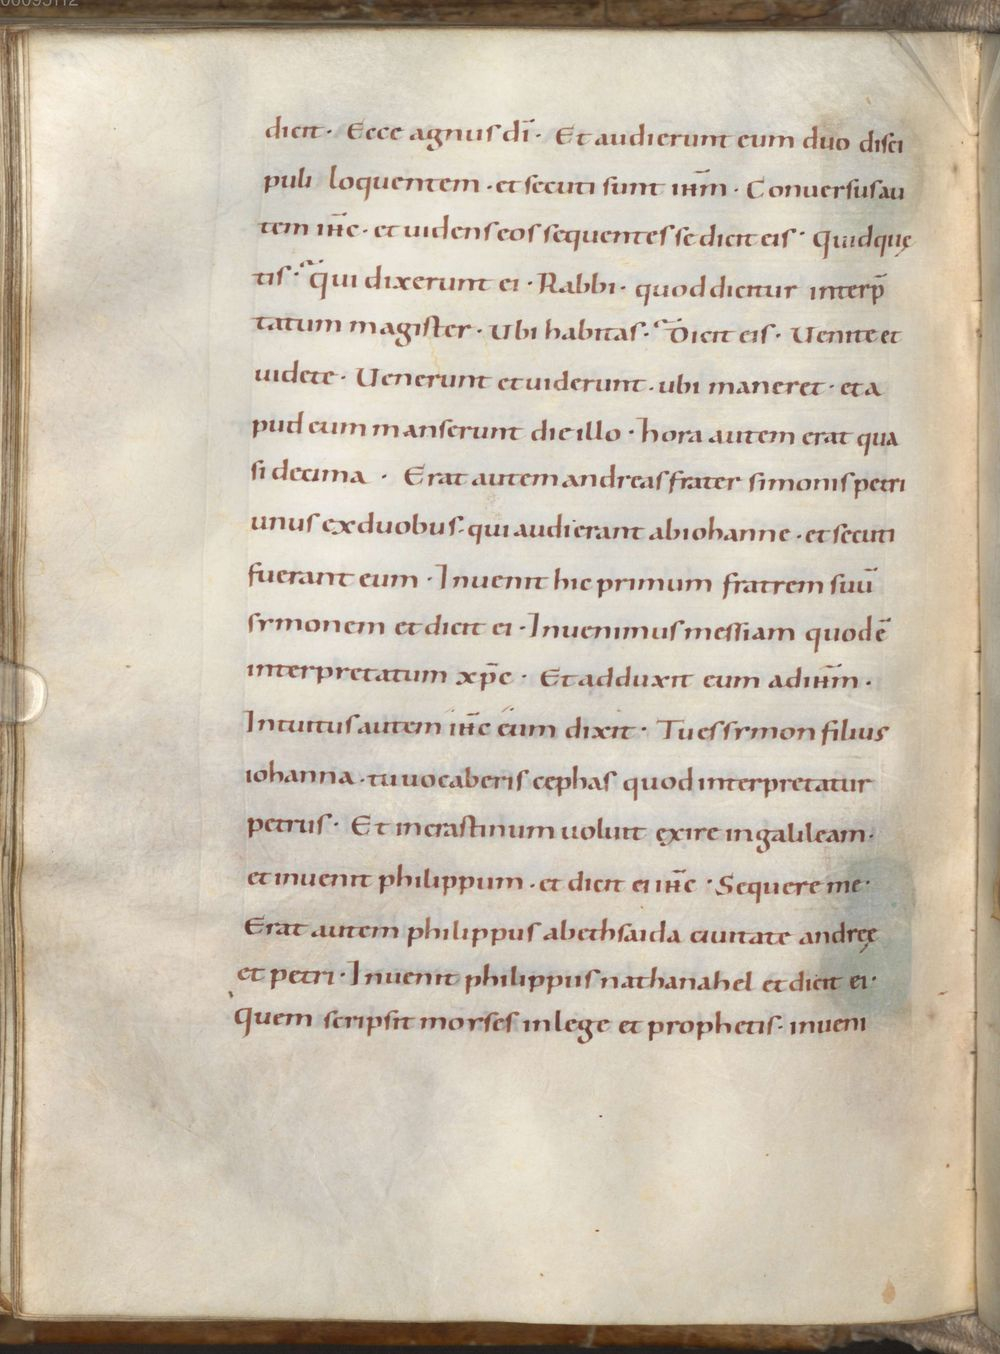 dicit· Ecce agnus dī· Et audierunt eum duo disci
puli loquentem·et secuti sunt ihm̄· Conuersus au
tem ihc̄· et uidens eos sequentes se dicit eis· Quid quę
tis· Qui dixerunt ei· Rabbi· quod dicitur interp̄
tatum magister· Ubi habitas· Dicit eis· Uenite et
uidete· Uenerunt et uiderunt·ubi maneret· et a
pud eum manserunt die illo· hora autem erat qua
si decima· Erat autem andreas frater simonis petri
unus ex duobus·qui audierant ab iohanne·et secuti
fuerant eum· Inuenit hic primum fratrem suū
symonem et dicit ei· Inuenimus messiam quod ē
interpretatum xp̄c· Et adduxit eum ad ihm̄·
Intuitus autem ihc̄ eum dixit· Tu es symon filius
iohanna·tu uocaberis cephas quod interpretatur
petrus· Et in crastinum uoluit exire in galileam·
et inuenit philippum·et dicit ei ihc̄· Sequere me·
Erat autem philippus a bethsaida ciuitate andreę
et petri· Inuenit philippus nathanahel et dicit ei·
Quem scripsit moyses in lege et prophetis· inueni